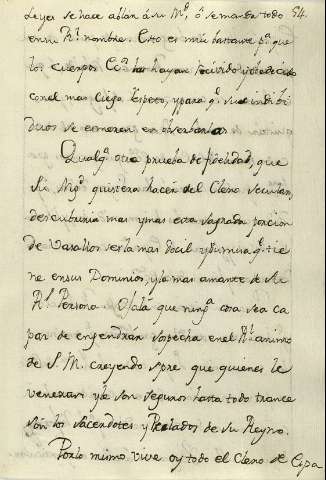 Leyes se hace ablan á su M.d, ó se manda todo 54.
en su R.l nombre. Esto es mui bastante p.a que
los cuerpos Ecc.os las hayan recivido y obedecido
con el mas ciego respeto, y para q.e sus indibi
duos se esmeren en obserbarlas
Qualq.a otra prueba de fidelidad, que
Su Mag.d quisiera hacer del Clero secular,
descubriria mas y mas esta sagrada porcion
de Vasallos ser la mas docil y sumisa q.e tie
ne en sus Dominios, y la mas amante de su
R.l Persona. Ojalá que ning.a cosa sea ca
paz de engendrár sospecha en el R.l animo
de S. M. creyendo spre que quienes le
veneran y le son seguros hasta todo trance
són los sacerdotes y Prelados de su Reyno.
Por lo mismo vive oy todo el Clero de Espa